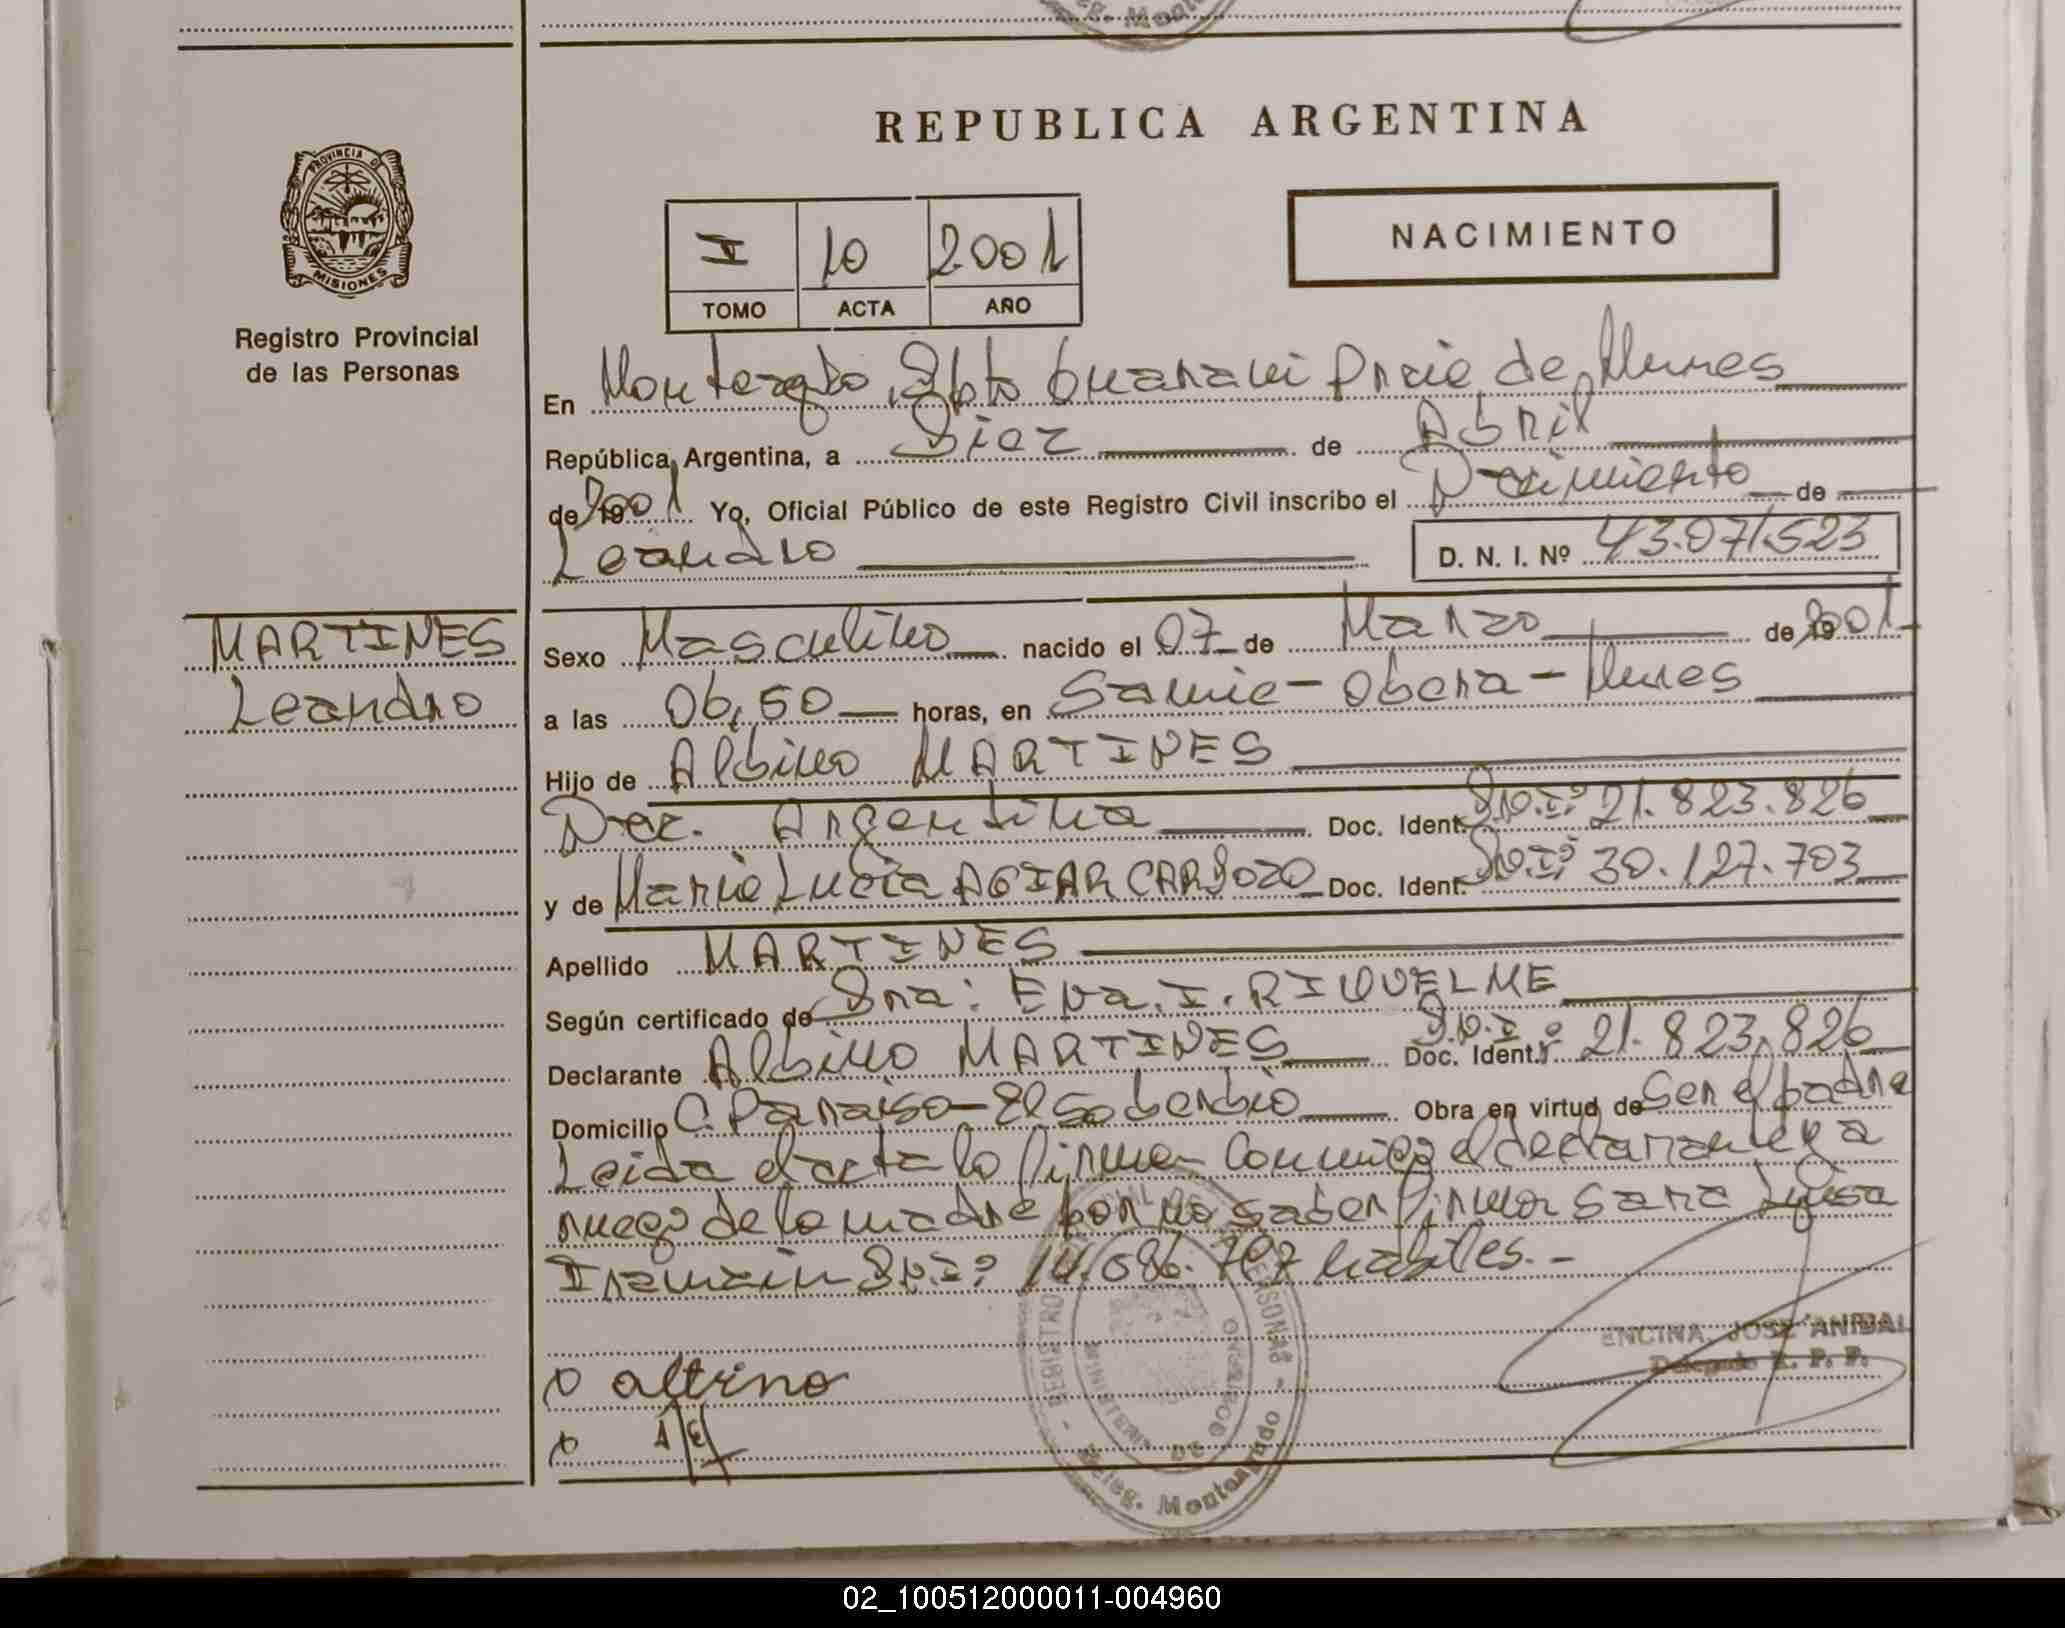 REPUBLICA ARGENTINA
PROVINCIA DE
MISIONES
Registro Provincial
de las Personas
I 10 2001
TOMO ACTA AÑO
NACIMIENTO
En Monteagdo, Dpto Guarani Pncia de Mnes
República Argentina, a Diez de Abril
de 2001 Yo, Oficial Público de este Registro Civil inscribo el Nacimiento de
Leandro D. N. I. Nº 43.071.523
MARTINES
Leandro
Sexo Masculino nacido el 07 de Marzo de 2001
a las 06,50 horas, en Samic - Obera - Mnes
Hijo de Albino MARTINES
Nac. Argentina Doc. Ident. D.N.I: 21.823.826
y de Maria Lucia AGIAR CARDOZO Doc. Ident. D.N.I: 30.127.703
Apellido MARTINES
Según certificado de Sra: Eva. I. RIQUELME
Declarante Albino MARTINES Doc. Ident. D.N.I: 21.823.826
Domicilio C. Paraiso - El Soberbio Obra en virtud de Ser el padre
Leida el acta la firma Conmigo el declarante y a
ruego de la madre por no saber firmar Sara Luisa
D.N.I: 14.086.707 habiles. -
ENCINA, JOSE ANIBAL
Delegado R. P. P.
x altrino
x
REGISTRO PERSONAS
MINISTERIO DE GOBIERNO
Deleg. Monteagudo
02_100512000011-004960